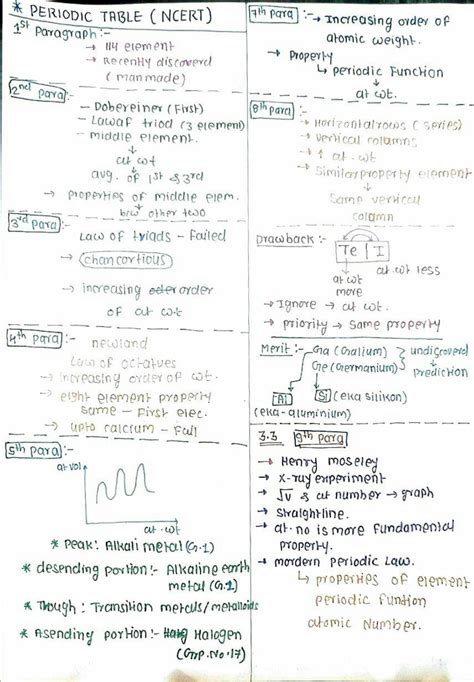 * PERIODIC TABLE (NCERT)
1st Paragraph:-
→ 114 element
→ Recently discoverd
(manmade)
2nd Para:-
- Dobereiner (First)
- Lawof triod (3 element)
- middle element.
↓
at wt
↓
avg. of 1st & 3rd
→ properties of middle elem.
b/w other two
3rd para:-
Law of triads - Failed
→ chancortious
→ increasing order
of at wt
4th para:-
newland
Law of octatves
→ increasing order of wt.
→ eight element property
same - First elec.
→ upto calcium - Fail
5th para:-
at vol
at. wt
* peak: Alkali metal (G.1)
* desending portion:- Alkaline earth
metal (G.1)
* Though: Transition metals/metalloids
* Asending portion:- Halogen
(Grp. No. 17)
7th para:-
→ Increasing order of
atomic weight.
→ Property
↳ periodic Function
↓
at wt.
8th para:-
→ Horizontal rows (series)
→ vertical columns
→ ↑ at. wt
→ Similar property element
↓
Same vertical
column
Drawback:-
Te | I
at wt
more
at.wt less
→ Ignore → at wt.
→ priority → same property
Merit:- Ga (Gallium)
Ge (Germanium)
undiscoverd
→ prediction
Al
Si (eka silikon)
(eka-aluminium)
3.3 9th para
→ Henry moseley
→ X-ray experiment
→ √v & at number → graph
→ straightline.
→ at. no is more fundamental
property.
→ mordern periodic Law.
↳ properties of element
periodic funtion
atomic Number.